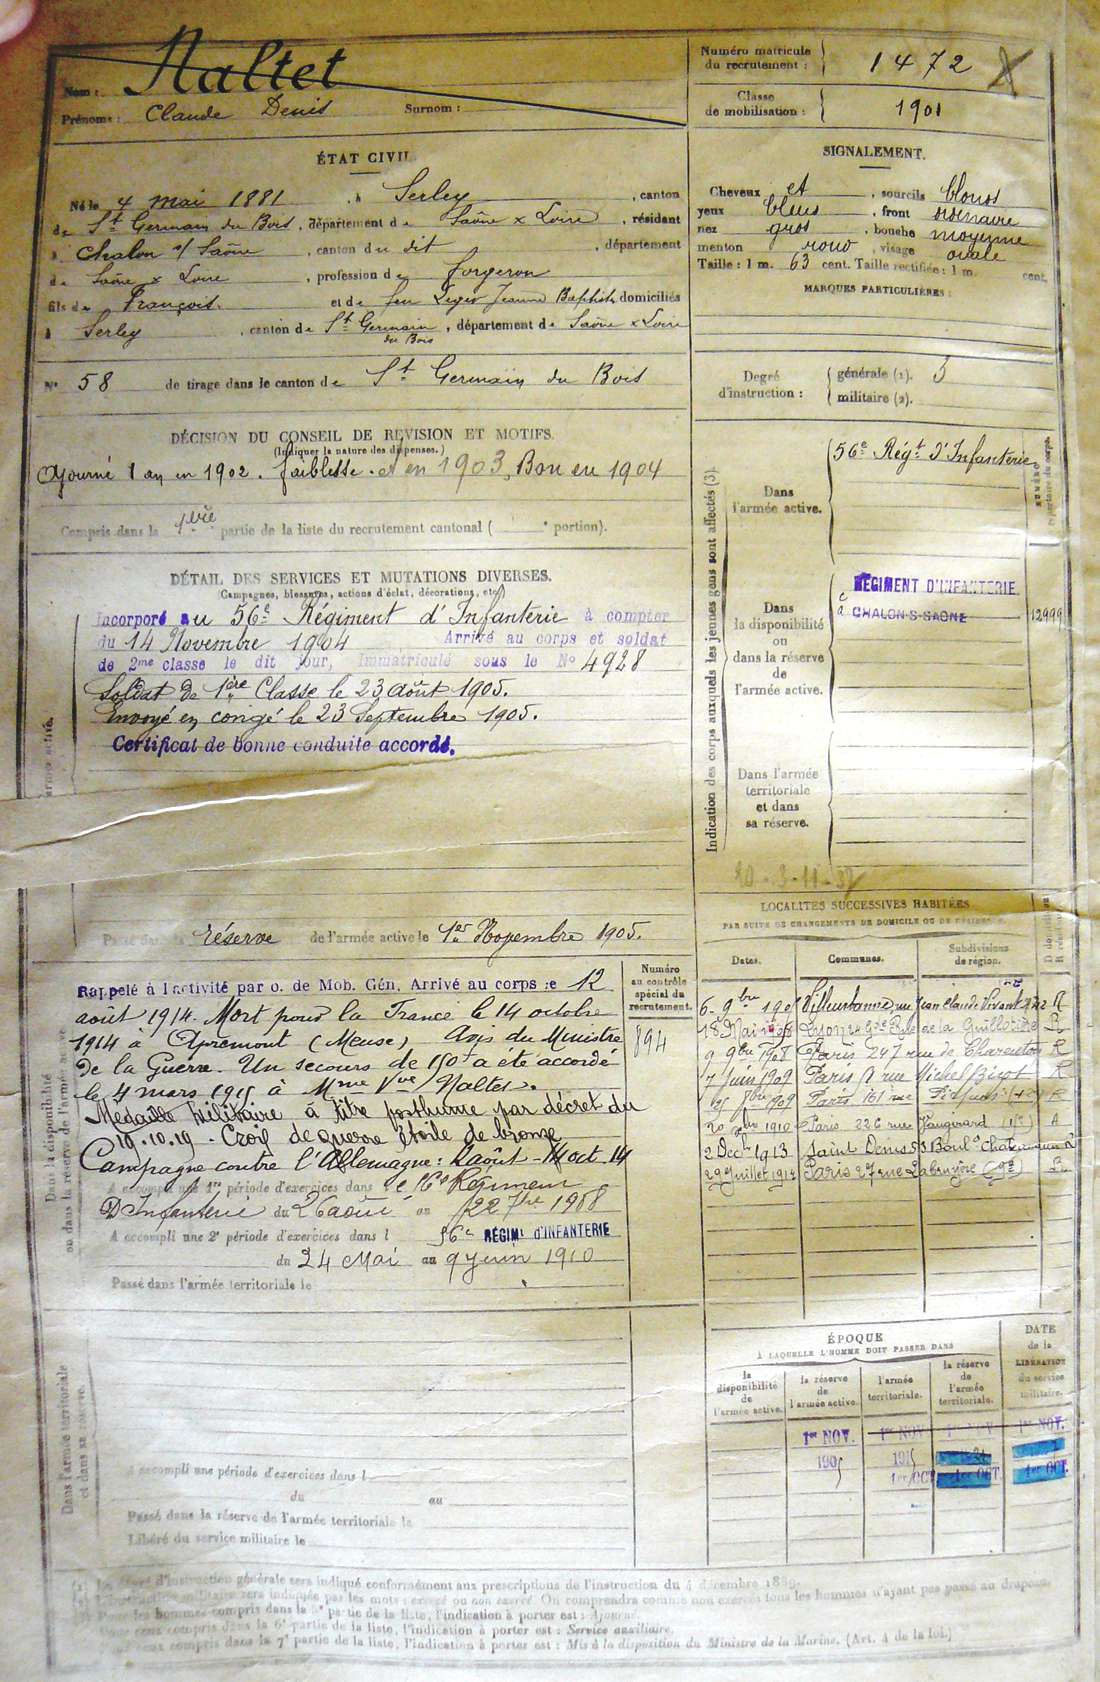 Nom : Naltet
Prénoms : Claude Denis Surnom :
Numéro matricule
du recrutement : 1472
Classe
de mobilisation : 1901
ÉTAT CIVIL
Né le 4 mai 1881, à Serley, canton
de St Germain du Bois, département de Saône & Loire, résidant
à Chalon s/ Saône, canton du dit, département
de Saône & Loire, profession de forgeron
fils de François et de feu Leger Jeanne Baptiste domiciliés
à Serley, canton de St Germain du Bois, département de Saône & Loire
No 58 de tirage dans le canton de St Germain du Bois
SIGNALEMENT.
Cheveux et, sourcils blonds
yeux bleus, front ordinaire
nez gros, bouche moyenne
menton rond, visage ovale
Taille : 1 m. 63 cent. Taille rectifiée : 1 m. cent.
MARQUES PARTICULIÈRES :
Degré
d'instruction :
générale (1). 3
militaire (2).
DÉCISION DU CONSEIL DE REVISION ET MOTIFS.
(Indiquer la nature des dispenses.)
Ajourné 1 an en 1902. faiblesse. et en 1903, Bon en 1904
Compris dans la 1ère partie de la liste du recrutement cantonal ( e portion).
DÉTAIL DES SERVICES ET MUTATIONS DIVERSES.
(Campagnes, blessures, actions d'éclat, décorations, etc.)
Incorporé au 56e Régiment d'Infanterie à compter
du 14 Novembre 1904 Arrivé au corps et soldat
de 2me classe le dit jour, Immatriculé sous le No 4928
Soldat de 1ère Classe le 23 août 1905.
Envoyé en congé le 23 Septembre 1905.
Certificat de bonne conduite accordé.
Passé dans la réserve de l'armée active le 1er Novembre 1905.
Indication des corps auxquels les jeunes gens sont affectés (3).
Dans
l'armée active.
56e Régt d'Infanterie
Dans
la disponibilité
ou
dans la réserve
de
l'armée active.
RÉGIMENT D'INFANTERIE
à CHALON-S-SAÔNE
12999
Dans l'armée
territoriale
et dans
sa réserve.
Dans la disponibilité
ou dans la réserve de l'armée active
Numéro
au contrôle
spécial du
recrutement.
894
Rappelé à l'activité par o. de Mob. Gén. Arrivé au corps le 12
août 1914. Mort pour la France le 14 octobre
1914 à Apremont (Meuse), Avis du Ministre
de la Guerre. Un secours de 150f a été accordé
le 4 mars 1915 à Mme Vve Naltet.
Médaille Militaire à titre posthume par décret du
19.10.19 - Croix de guerre étoile de bronze
Campagne contre l'Allemagne : 2 août - 14 oct. 14
A accompli une 1re période d'exercices dans le 16e Régiment
D'Infanterie du 26 août au 22 7bre 1908
A accompli une 2e période d'exercices dans l 56e RÉGIMt D'INFANTERIE
du 24 Mai au 9 juin 1910
Passé dans l'armée territoriale le
LOCALITÉS SUCCESSIVES HABITÉES
PAR SUITE DE CHANGEMENTS DE DOMICILE OU DE RÉSIDENCE.
Dates. Communes. Subdivisions de région.
Villeurbanne, rue Jean Claude Vivant R
18 Mai 1908 Lyon Gde Rue de la Guillotière R
9 9bre 1908 Paris 247 rue de Charenton R
7 juin 1909 Paris rue Michel Bizot R
1909 Paris 161 rue R
1910 Paris 226 rue Vaugirard (15e) A
2 Dec 1913 Saint Denis Boul
29 Juillet 1914 Paris 27 rue Labruyère (9e) R
ÉPOQUE
À LAQUELLE L'HOMME DOIT PASSER DANS
la
disponibilité
de
l'armée active.
la réserve
de
l'armée active.
l'armée
territoriale.
la réserve
de
l'armée
territoriale.
DATE
de la
LIBÉRATION
du service
militaire.
1er NOV. 1er NOV. 1er NOV. 1er NOV.
1905 1915
1er OCT. 1er OCT. 1er OCT.
Dans l'armée territoriale
et dans sa réserve.
A accompli une période d'exercices dans l
du au
Passé dans la réserve de l'armée territoriale le
Libéré du service militaire le
(1) Le degré d'instruction générale sera indiqué conformément aux prescriptions de l'instruction du 4 décembre 1889.